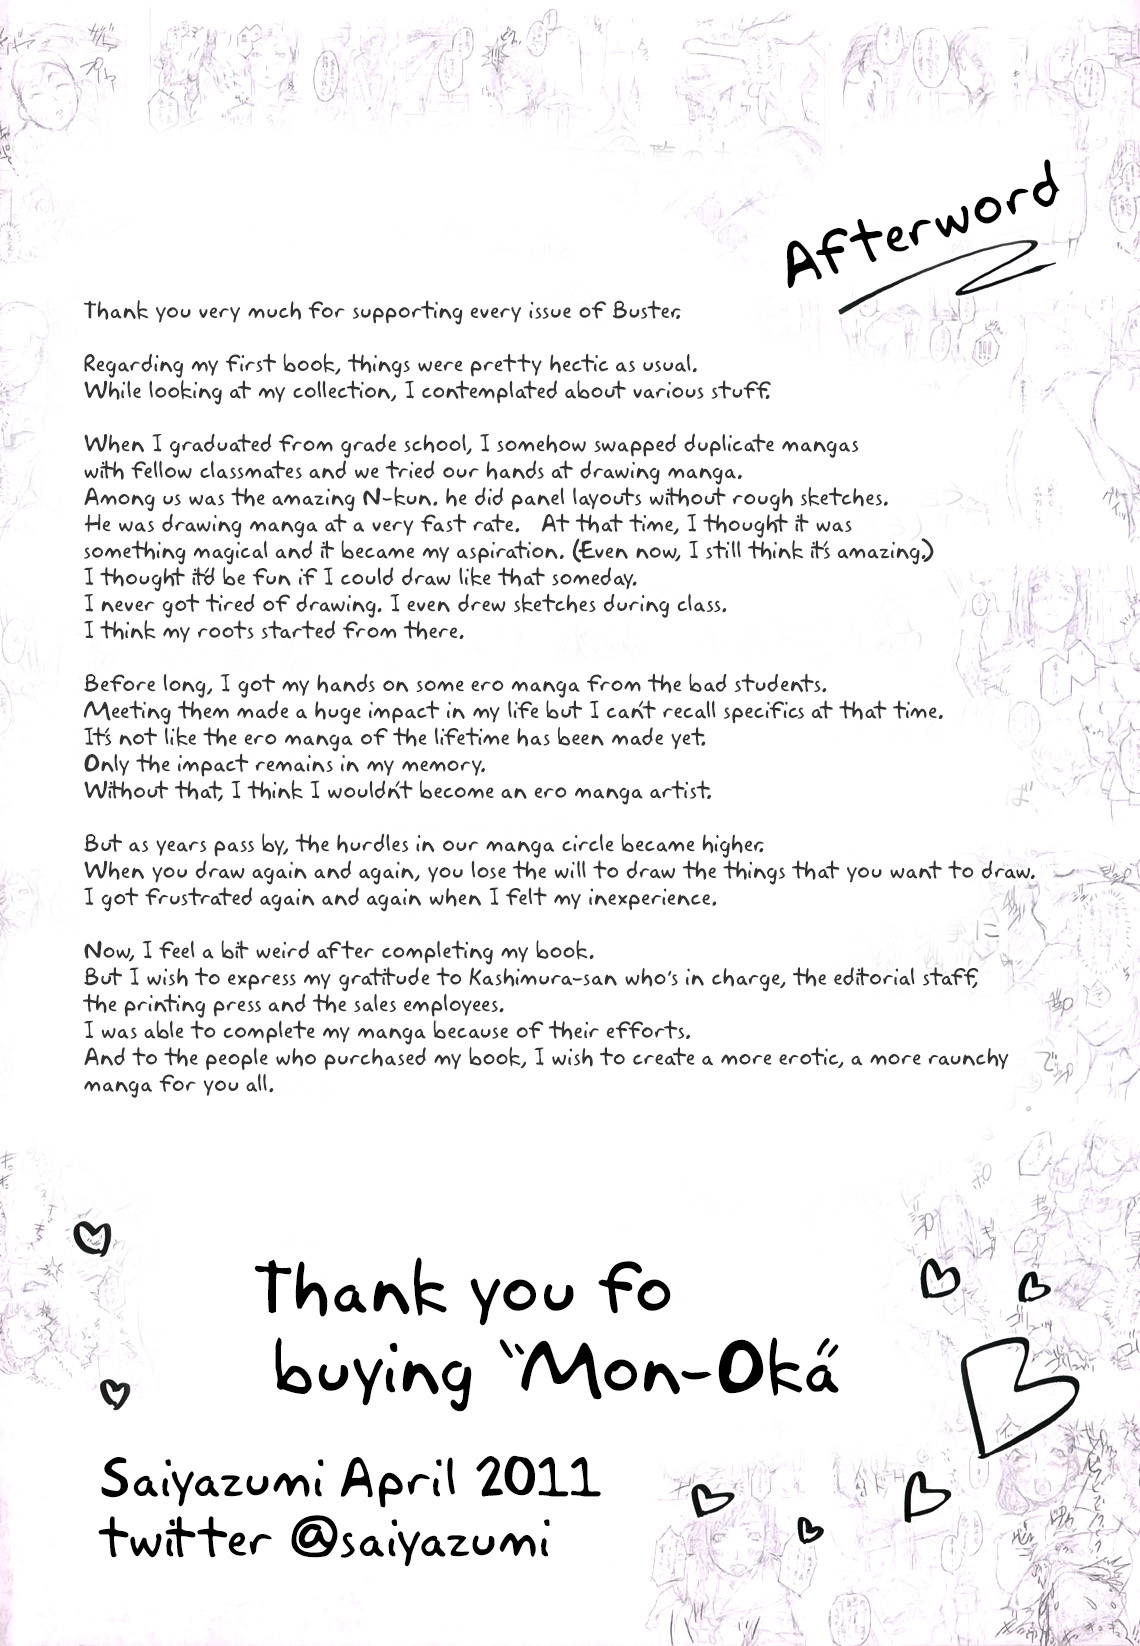 Afterword
Thank you very much for supporting every issue of Buster.
Regarding my first book, things were pretty hectic as usual.
While looking at my collection, I contemplated about various stuff.
When I graduated from grade school, I somehow swapped duplicate mangas
with fellow classmates and we tried our hands at drawing manga.
Among us was the amazing N-kun. he did panel layouts without rough sketches.
He was drawing manga at a very fast rate. At that time, I thought it was
something magical and it became my aspiration. (Even now, I still think it's amazing.)
I thought it'd be fun if I could draw like that someday.
I never got tired of drawing. I even drew sketches during class.
I think my roots started from there.
Before long, I got my hands on some ero manga from the bad students.
Meeting them made a huge impact in my life but I can't recall specifics at that time.
It's not like the ero manga of the lifetime has been made yet.
Only the impact remains in my memory.
Without that, I think I wouldn't become an ero manga artist.
But as years pass by, the hurdles in our manga circle became higher.
When you draw again and again, you lose the will to draw the things that you want to draw.
I got frustrated again and again when I felt my inexperience.
Now, I feel a bit weird after completing my book.
But I wish to express my gratitude to Kashimura-san who's in charge, the editorial staff,
the printing press and the sales employees.
I was able to complete my manga because of their efforts.
And to the people who purchased my book, I wish to create a more erotic, a more raunchy
manga for you all.
Thank you fo
buying "Mon-Oka"
Saiyazumi April 2011
twitter @saiyazumi